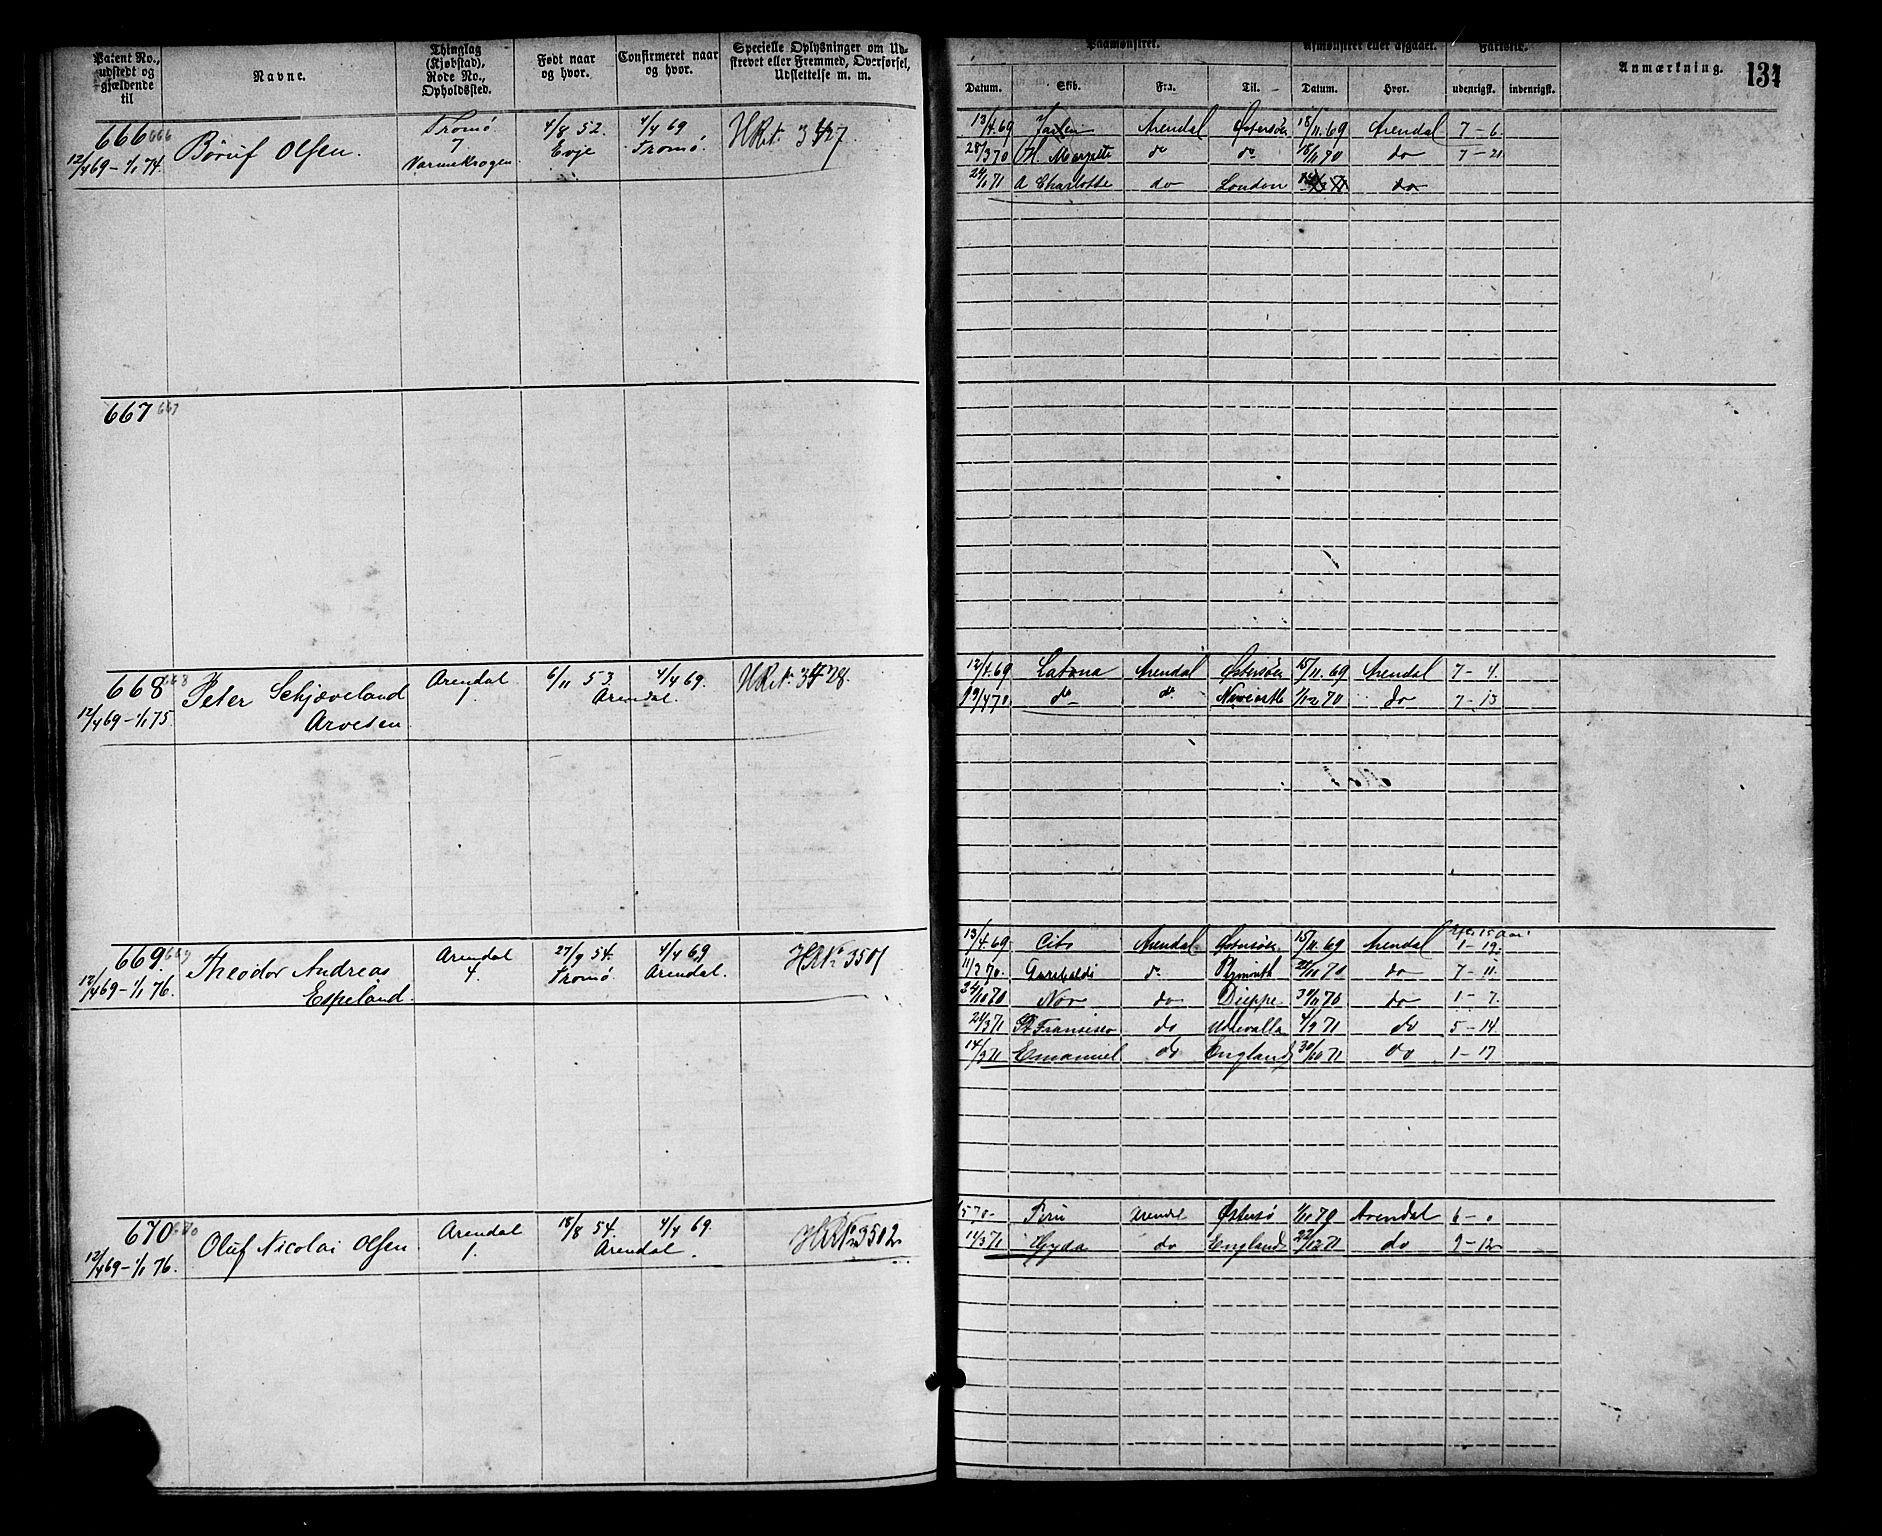 Patent No., udstedt og gjældende til
Navne.
Thinglag (Kjøbstad), Rode No., Opholdssted.
Født naar og hvor.
Confirmeret naar og hvor.
Specielle Oplysninger om Udskrevet eller Fremmed, Overførsel, Udslettelse m. m.
Paamønstret.
Datum. Skib. Fra. Til.
Afmønstret eller afgaaet.
Datum. Hvor.
Fartstid.
udenrigsk. indenrigsk.
Anmærkning.
131
666 666 Tromø 4/8 52. 4/4 69
12/4 69 – 1/1 74. Olsen. 7 Evje Tromø.
13/4 69 Arendal Østersøen 18/11 69 Arendal 7 – 6
28/3 70 do do 18/11 70 do 7 – 21
24/1 71 A Charlotte do London do
667 667
668 668 Peter Schjæveland Arendal 6/11 53 4/4 69. HRt. 3428
12/4 69 – 1/1 75. Arvesen 1 Arendal.
12/4 69 Latona Arendal Østersøen 15/11 69 Arendal 7 – 4
19/4 70 do do do 7 – 13
669. 669 Theodor Andreas Arendal 27/9 54. 4/4 69 HRNr 3501
12/4 69 – 1/1 76. Espeland. 4. Tromø. Arendal.
13/4 69 Cito Arendal Østersøen 15/11 69 Arendal 1 – 19
11/3 70 Garibaldi do Plymouth do 7 – 11
24/10 70 Nor do Dieppe 30/11 70 do 1 – 7
24/3 71 St Fransisco do Udevalla 4/9 71 do 5 – 14
14/9 71 Emanuel do England 30/10 71 do 1 – 17
670 670 Oluf Nicolai Olsen Arendal 18/8 54. 4/4 69. HRNr 3502
12/4 69 – 1/1 76. 1. Arendal.
Peru Arendal Østersø Arendal 6 – 0
Gyda do England 22/12 71 do 9 – 12